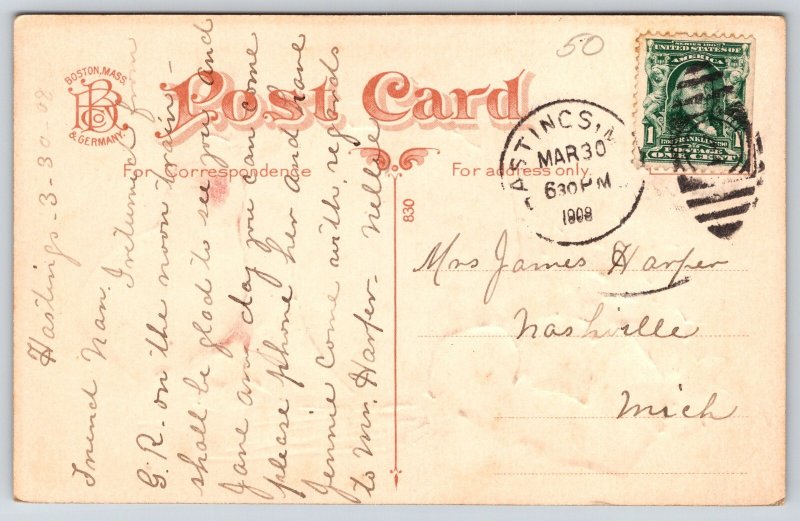 50
BOSTON, MASS.
B Co
& GERMANY.
Post Card
For Correspondence
For address only.
830
SERIES 1902
UNITED STATES OF
AMERICA
1 FRANKLIN 1
POSTAGE
ONE CENT
HASTINGS, M
MAR 30
630 PM
1908
Hastings-3-30-08
Friend Nan. I returned from
G. R. on the noon train-
shall be glad to see you and
Jane any day you can come
please phone her and have
Jennie come with regards
to Mr. Harper- Nellie
Mrs James Harper
Nashville
Mich